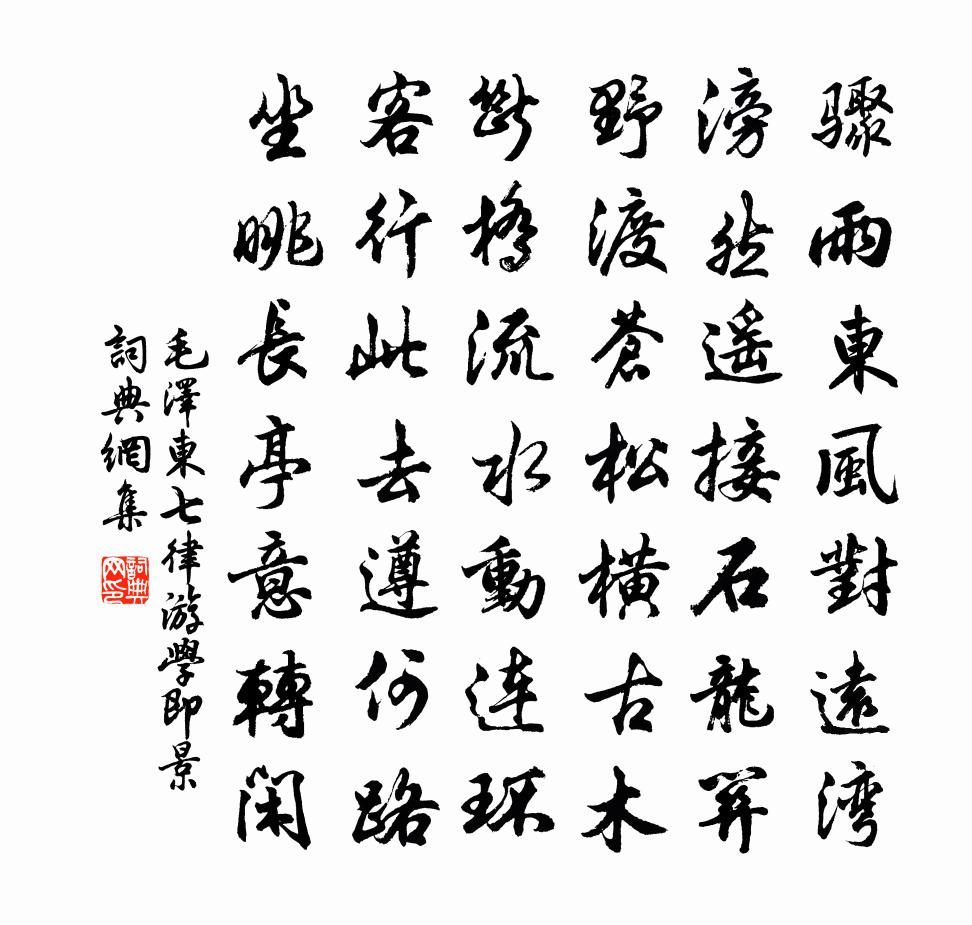 驟雨東風對遠灣
滂然遙接石龍關
野渡蒼松橫古木
斷橋流水動連環
客行此去遵何路
坐眺長亭意轉閑
毛澤東七律游學即景
詞典網集
詞典网印